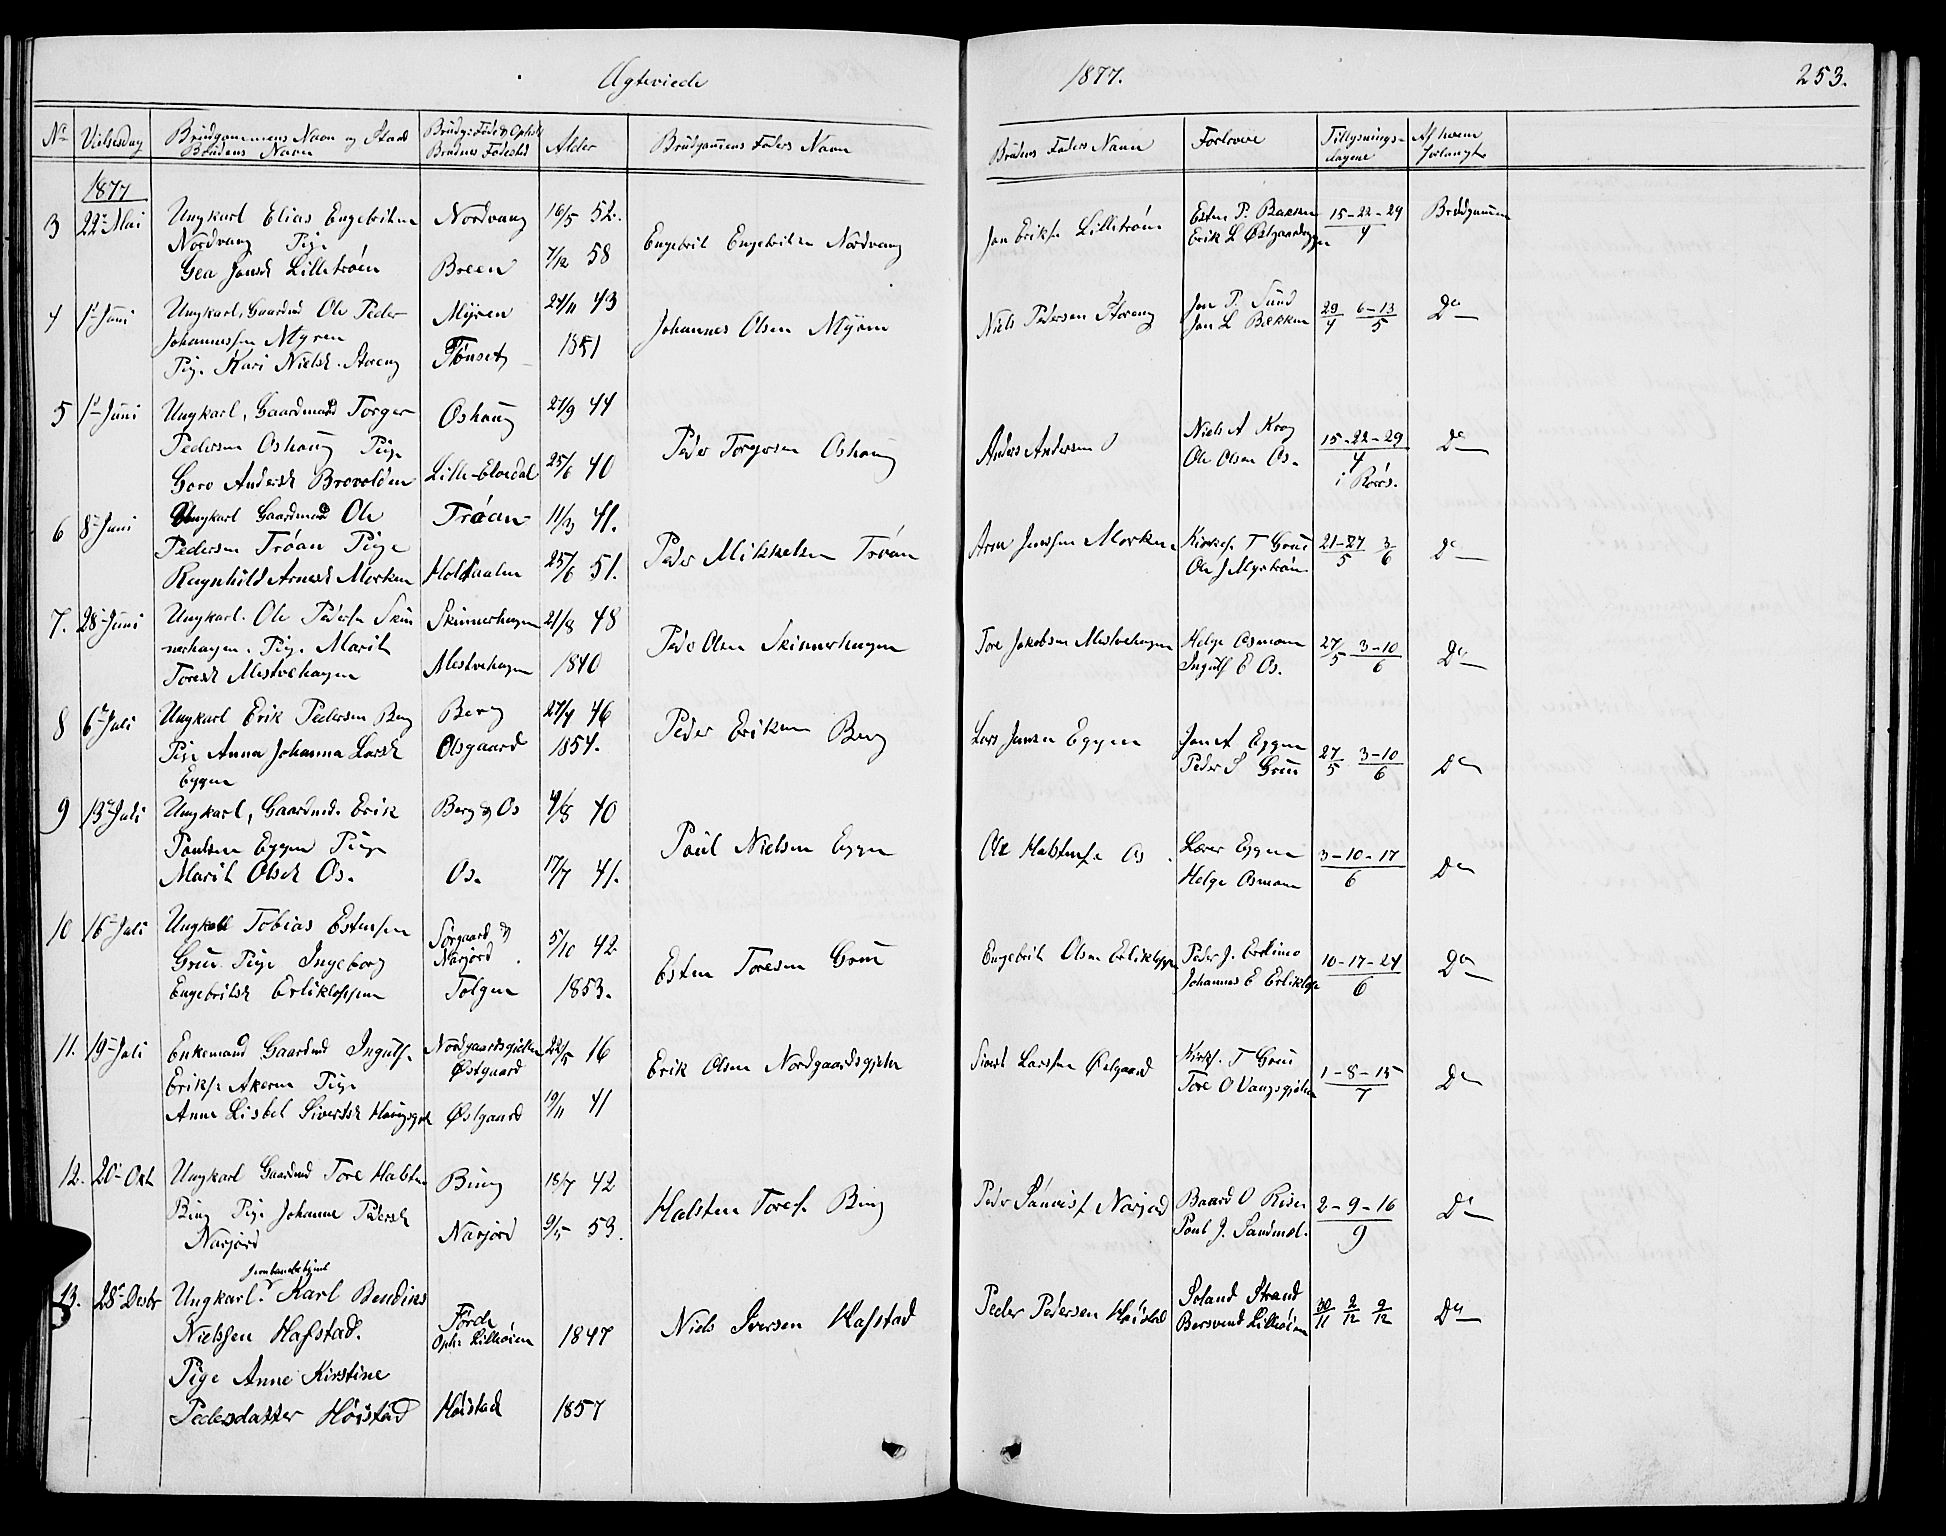 Ægteviede 1877. 253.
No Vielsesdag Brudgommens Navn og Stand Brudg: Føde & Opholds Alder Brudgommens Faders Navn Brudens Faders Navn Forlovere Tillysnings- Af hvem
Brudens Navn Brudens Fødested dagene forlangt
1877
3 22de Mai Ungkarl Elias Engebritsen Nordvang 16/5 52. Engebrit Engebritsen Nordvang Jon Eriksen Lilletrøen Esten P. Bakken 15-22-29 Brudgommen
Nordvang Pige Erik L Østgaardseggen 4
Gea Jonsd Lilletrøen Breen 7/12 58
4 1ste Juni Ungkarl, Gaardmd Ole Peder Myren 24/11 43 Johannes Olsen Myren Niels Pedersen Storeng Jon P. Sund 29/4 6-13/5 Do
Johannessen Myren Jon L Bekken
Pige Kari Nielsd. Storeng Tønset 1851
5 1ste Juni Ungkarl, Gaardmand Torger Oshaug 21/9 44 Peder Torgersen Oshaug Anders Andersen Niels A Krog 15-22-29 Do
Pedersen Oshaug Pige Ole Olsen Os. 4
Goro Andersd Brovolden Lille-Elvedal 25/6 40 i Røros.
6 8de Juni Ungkarl Gaardmand Ole Trøan 11/3 41. Peder Mikkelsen Trøan Arne Jensen Morken Kirkes. T Grue 21-27/5 3/6 Do
Pedersen Trøan Pige Ole J Myrtrøen
Ragnhild Arnesd Morken Holtaalen 25/6 51.
7. 28de Juni Ungkarl. Ole Peders. Skin Skinnerhaugen 21/8 48 Peder Olsen Skinnerhaugen Tore Jakobsen Mestvehagen Helge Osmoen 27/5 3-10/6 Do
nerhaugen. Pige. Marit Ingulf E Os.
Toresd Mestvehagen Mestvehagen 1840
8 6te Juli Ungkarl Erik Pedersen Berg Berg 27/4 46 Peder Eriksen Berg Lars Jensen Eggen Jon A Eggen 27/5 3-10/6 Do
Pige Anna Johanna Larsd Olsgaard 1854. Peder S Grue
Eggen
9 13de Juli Ungkarl, Gaardmd. Erik Berg & Os 4/8 40 Poul Nielsen Eggen Ole Halstens. Os Lærer Eggen 3-10-17 Do
Poulsen Eggen Pige Helge Osmoen 6
Marit Olsd Os. Os. 17/7 41.
10 16de Juli Ungkarl Tobias Estensen Sørgaard & 5/10 42 Esten Toresen Grue Engebrit Olsen Erlikloppen Peder J. Erlimo 10-17-24 Do
Grue. Pige Ingeborg Narjord Johannes E Erliklop 6
Engebritsd Erlikloppen Tolgen 1853.
11. 19de Juli Enkemand Gaardmd Ingulf. Nordgaardsgjelten 22/5 16 Erik Olsen Nordgaardsgjelten Sivert Larssen Østgaard Kirkes. T Grue 1-8-15 Do
Eriks. Akeren Pige Østgaard Tore O Vangsgjelten 7
Anne Lisbet Sivertsd Haugsgjelt Østgaard 19/11 41
12. 20de Okt Ungkarl Gaardmd Tore Halsten Bung 18/7 42 Halsten Tores. Bung Peder Jonnes. Narjord Baard O Risen 2-9-16 Do
Bung Pige Johanne Pedersd Poul J. Sandmel. 9
Narjord Narjord 9/5 53.
Jernbanebetjent
13. 28de Desbr Ungkarl. Karl Bendins Førde Niels Iversen Hafstad Peder Pedersen Høistad Soland Strand 30/11 2/12 9/12 Do
Nielssen Hafstad. Oph: Lilleøien 1847 Bersvend Lilleøien
Pige Anne Kirstine
Pedersdatter Høistad Høistad 1857